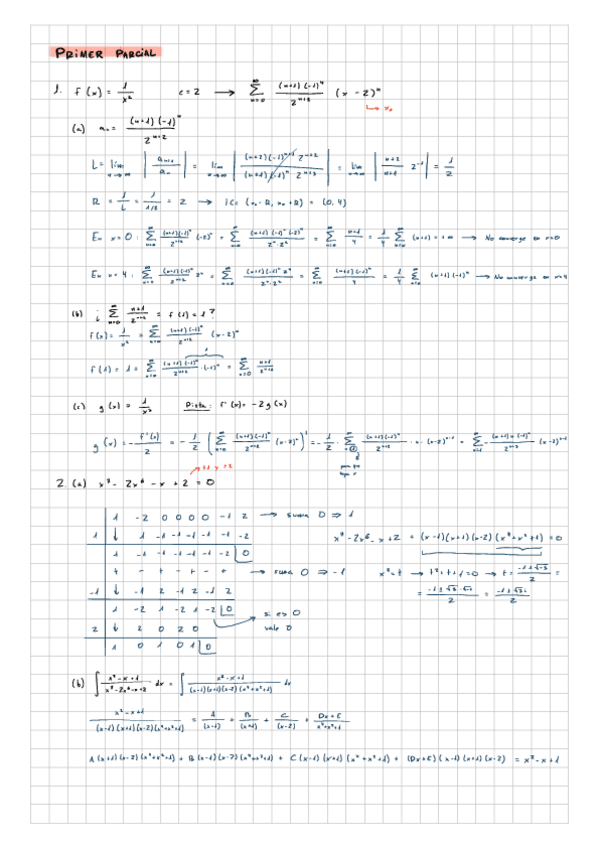 PRIMER PARCIAL
1. f(x) = 1/x² c=2 → ∑_{n=0}^∞ (n+1)(-1)^n / 2^{n+2} (x-2)^n
↳ x₀
(a) aₙ = (n+1)(-1)^n / 2^{n+2}
L = lim_{n→∞} |aₙ₊₁/aₙ| = lim_{n→∞} |(n+2)(-1)^{n+1} 2^{n+2} / (n+1)(-1)^n 2^{n+3}| = lim_{n→∞} |n+2/n+1 · 2^{-1}| = 1/2
R = 1/L = 1/1/2 = 2 → IC = (x₀-R, x₀+R) = (0,4)
En x=0: ∑_{n=0}^∞ (n+1)(-1)^n / 2^{n+2} (-2)^n = ∑_{n=0}^∞ (n+1)(-1)^n(-2)^n / 2^n·2² = ∑_{n=0}^∞ n+1/4 = 1/4 ∑_{n=0}^∞ (n+1) = +∞ → No converge en x=0
En x=4: ∑_{n=0}^∞ (n+1)(-1)^n / 2^{n+2} 2^n = ∑_{n=0}^∞ (n+1)(-1)^n 2^n / 2^n·2² = ∑_{n=0}^∞ (n+1)(-1)^n / 4 = 1/4 ∑_{n=0}^∞ (n+1)(-1)^n → No converge en x=4
(b) ¿ ∑_{n=0}^∞ n+1/2^{n+2} = f(1) = 1?
f(x) = 1/x² = ∑_{n=0}^∞ (n+1)(-1)^n / 2^{n+2} (x-2)^n
1
f(1) = 1 = ∑_{n=0}^∞ (n+1)(-1)^n / 2^{n+2} · (-1)^n = ∑_{n=0}^∞ n+1/2^{n+2}
(c) g(x) = 1/x³ Pista: f'(x) = -2g(x)
g(x) = - f'(x)/2 = - 1/2 (∑_{n=0}^∞ (n+1)(-1)^n / 2^{n+2} (x-2)^n)' = - 1/2 ·
+1 y ±2
2. (a) x⁷ - 2x⁶ - x + 2 = 0
1 -2 0 0 0 0 -1 2 → suma 0 ⇒ 1
1 ↓ 1 -1 -1 -1 -1 -1 -2
x⁷-2x⁶-x+2 = (x-1)(x+1)(x-2)(x⁴+x²+1) = 0
1 -1 -1 -1 -1 -1 -2 |0
+ - + - + - + → suma 0 ⇒ -1
x² = t → t²+t+1=0 → t = -1±√-3 / 2 =
-1 ↓ -1 2 -1 2 -1 2
= -1±√3·√-1 / 2 = -1±√3i / 2
1 -2 1 -2 1 -2 |0
si es 0
2 ↓ 2 0 2 0 2
vale 0
1 0 1 0 1 |0
(b) ∫ x²-x+1 / x⁷-2x⁶-x+2 dx = ∫ x²-x+1 / (x-1)(x+1)(x-2)(x⁴+x²+1) dx
x²-x+1 / (x-1)(x+1)(x-2)(x⁴+x²+1) = A/(x-1) + B/(x+1) + C/(x-2) + Dx+E / x⁴+x²+1
A(x+1)(x-2)(x⁴+x²+1) + B(x-1)(x-2)(x⁴+x²+1) + C(x-1)(x+1)(x⁴+x²+1) + (Dx+E)(x-1)(x+1)(x-2) = x²-x+1